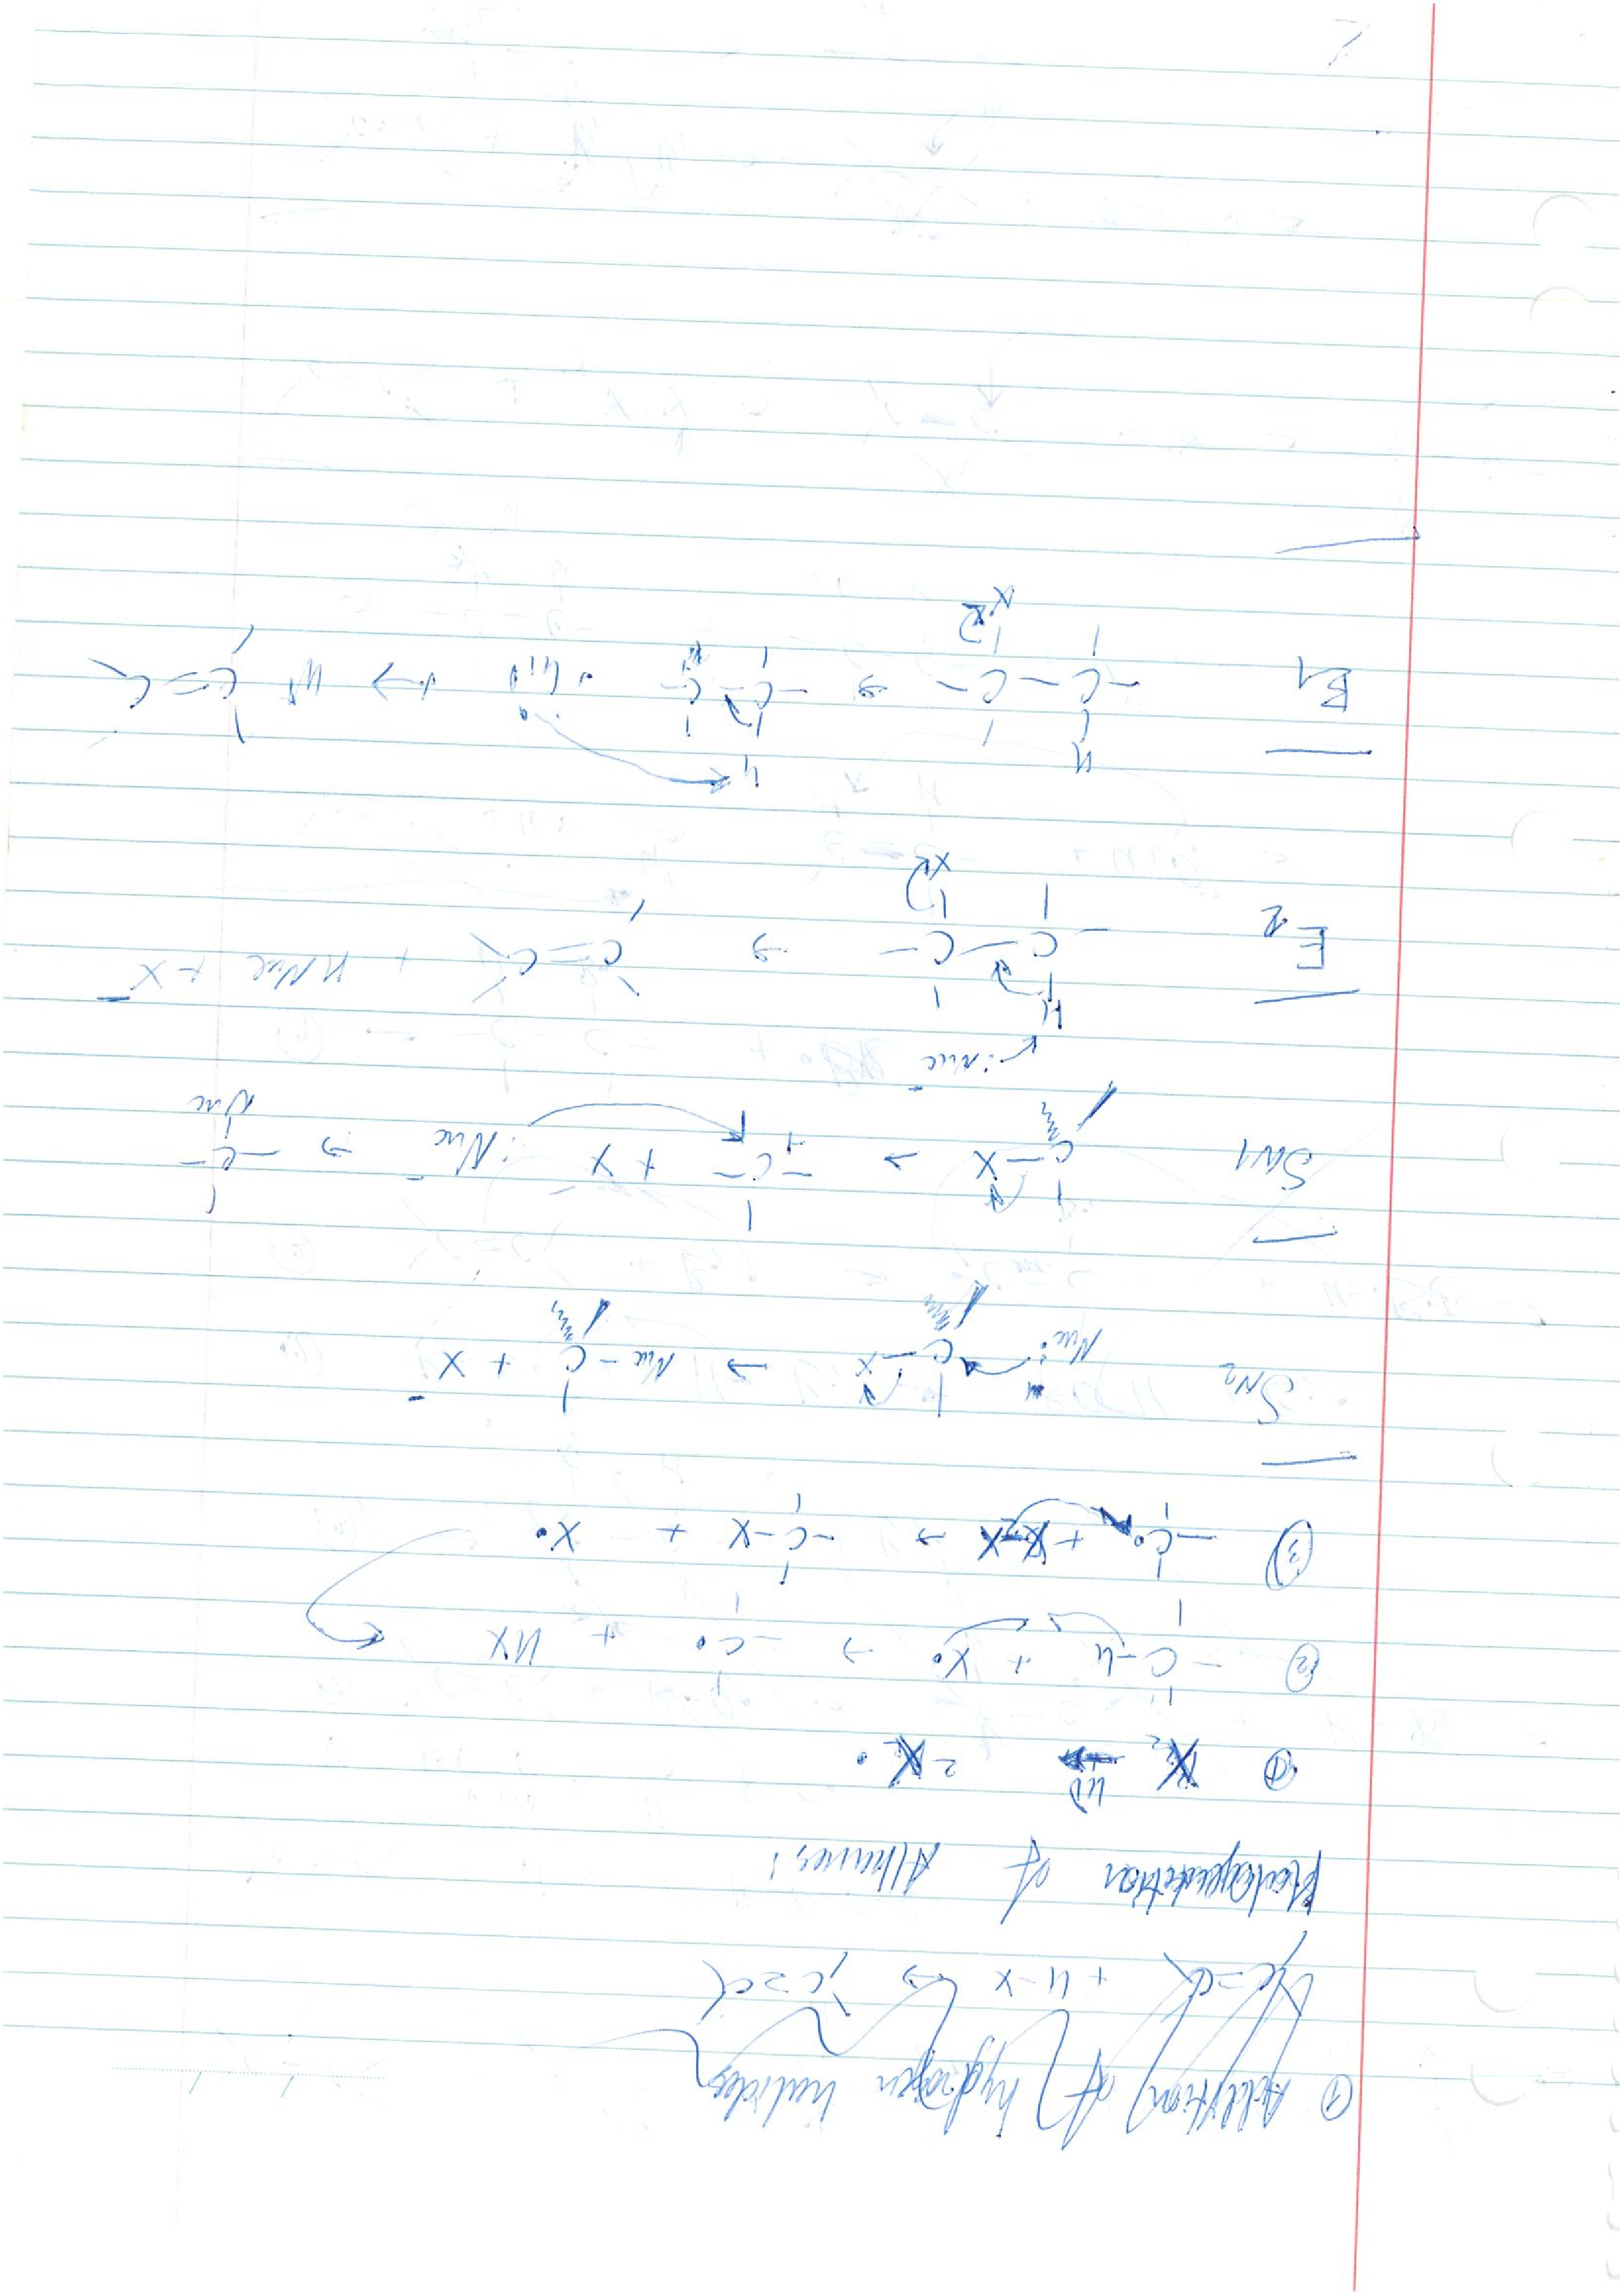 ① Addition of hydrogen halides
C=C + H-X → C=C
Halogenation of Alkanes:
① X₂ → 2X•
② -C-H + X• → -C• + HX
③ -C• + X-X → -C-X + X•
SN2 Nuc:⁻ C-X → Nuc-C + X⁻
SN1 C-X → -C-⁺ + X :Nuc⁻ → -C-
Nuc
:Nuc⁻
H
E2 -C-C- → C=C + HNuc + X⁻
X
H H
E1 -C-C- → -C-C- + → C=C
X